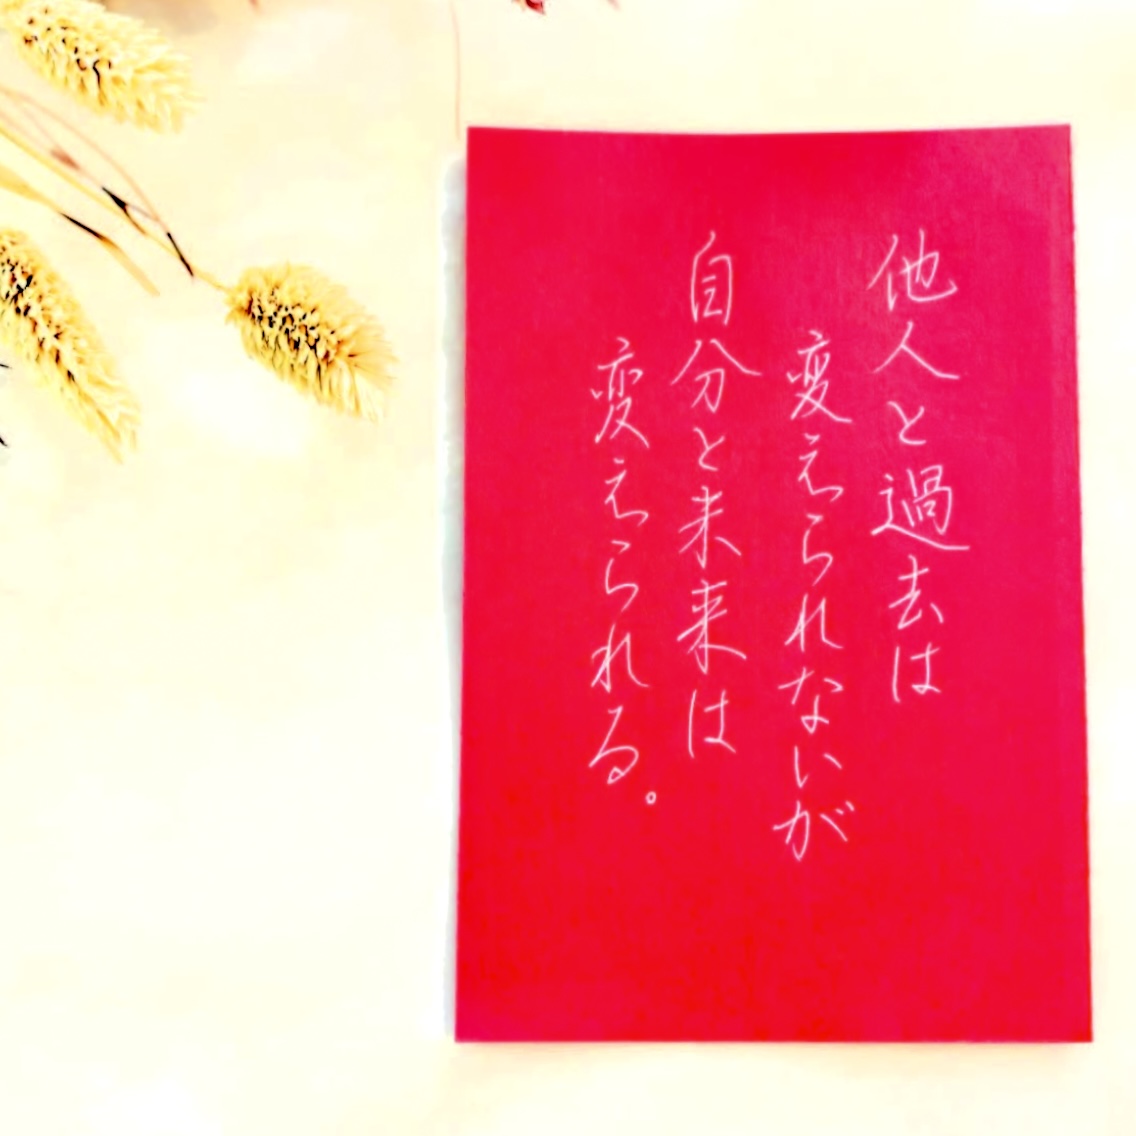 他人と過去は
変えられないが
自分と未来は
変えられる。